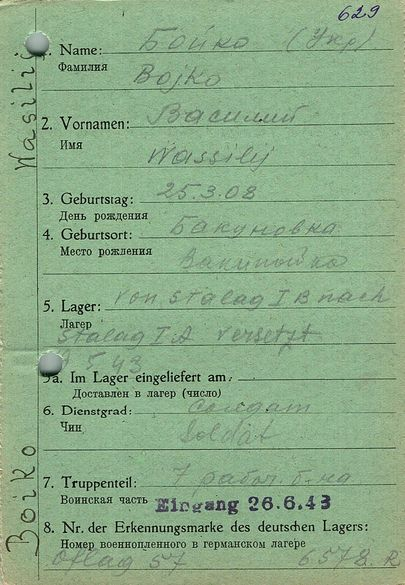 629
1. Name: Бойко (Укр)
Фамилия
Bojko
2. Vornamen: Василий
Имя
Wassilij
3. Geburtstag: 25.3.08
День рождения
4. Geburtsort: Бакуновка
Место рождения
5. Lager: von Stalag I B nach
Лагер
Stalag I A versetzt
5.43
5a. Im Lager eingeliefert am:
Доставлен в лагер (число)
6. Dienstgrad: Солдат
Чин
Soldat
7. Truppenteil: 7 рабоч. б-на
Воинская часть Eingang 26.6.43
8. Nr. der Erkennungsmarke des deutschen Lagers:
Номер военнопленного в германском лагере
Oflag 57 6578. R
Wasilij
Boiko